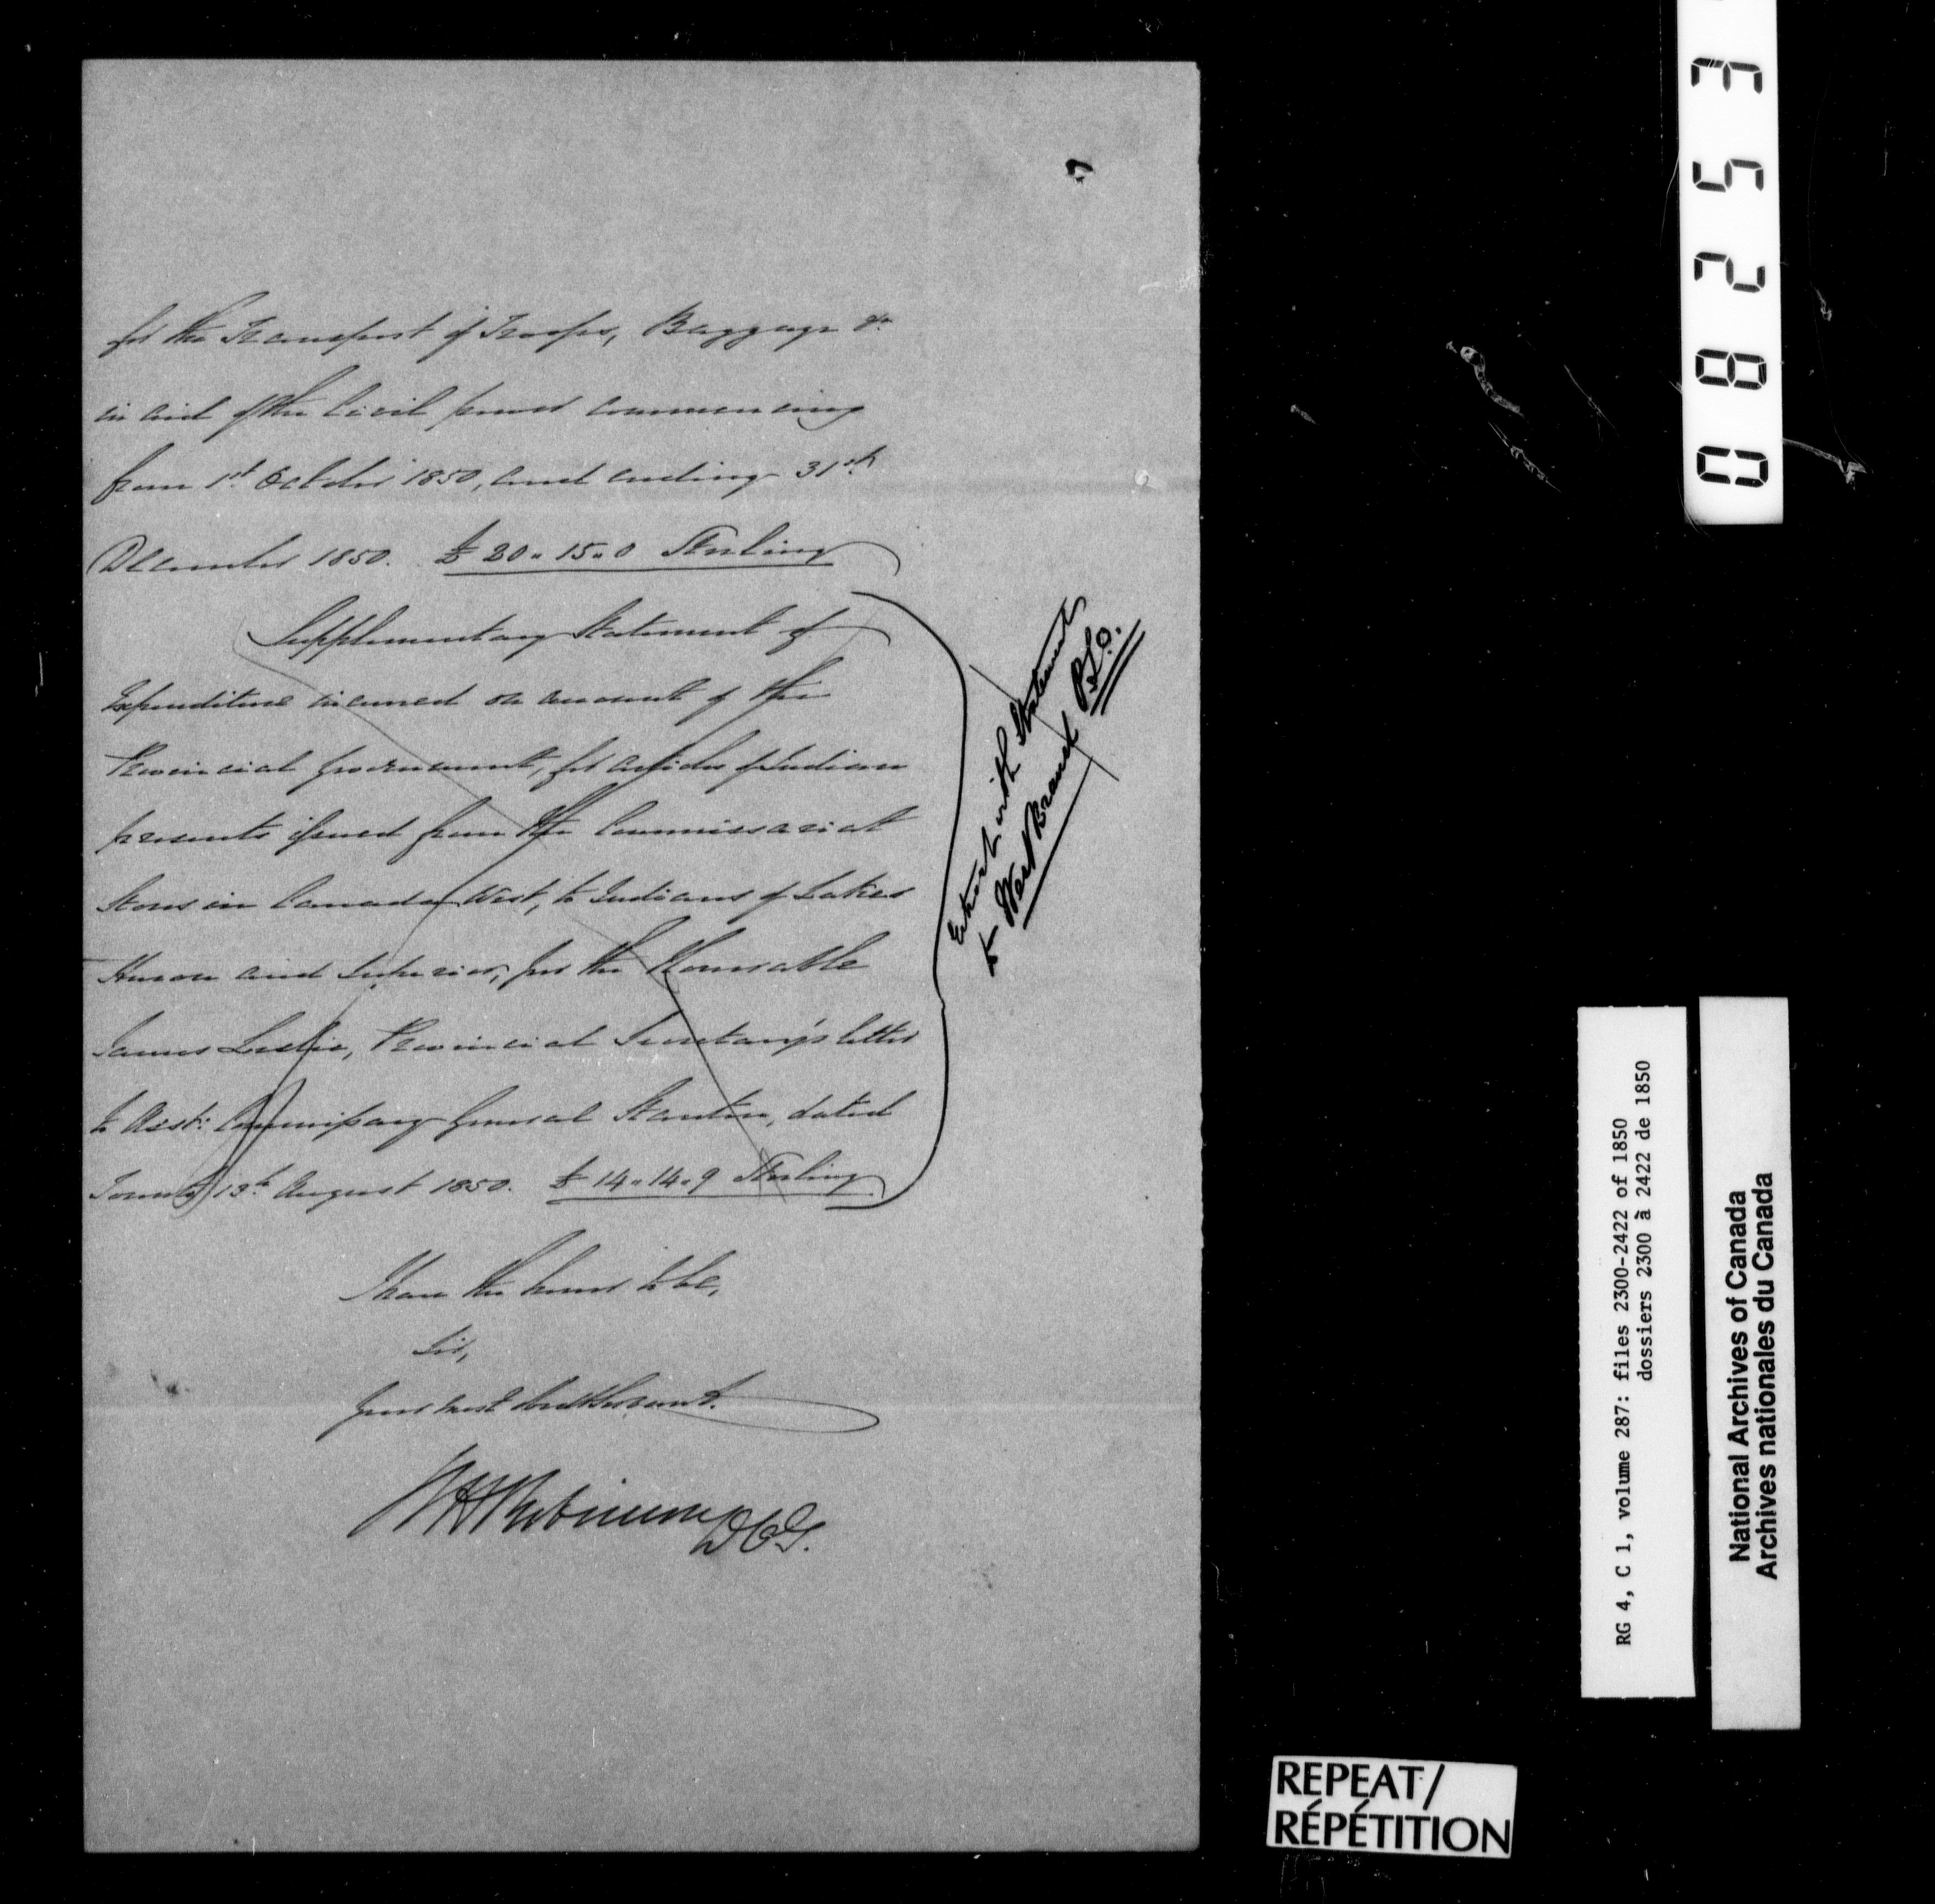 for the Transport of Troops, Baggage &c
in aid of the Civil power commencing
from 1st October 1850, and ending 31st
December 1850. £ 20 " 15 " 0 Sterling
Supplementary Statement of
Expenditure incurred on account of the
Provincial Government, for articles of Indian
presents issued from the Commissariat
Stores in Canada West, to Indians of Lakes
Huron and Superior, per the Honorable
James Leslie, Provincial Secretary's letter
to Asst: Commissary General Stanton, dated
Toronto 13th August 1850. £ 14 " 14 " 9 Sterling
I have the honor to be,
Sir,
Your most obedt Servant.
WHRobinson DCG.
Extract with Statement
to West Branch P.S.O.
08253
RG 4, C 1, volume 287: files 2300-2422 of 1850
dossiers 2300 à 2422 de 1850
National Archives of Canada
Archives nationales du Canada
REPEAT/
RÉPÉTITION